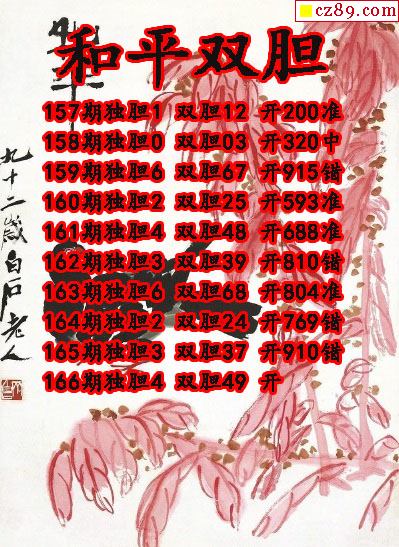 cz89.com
和平双胆
157期独胆1 双胆12 开200准
158期独胆0 双胆03 开320中
159期独胆6 双胆67 开915错
160期独胆2 双胆25 开593准
161期独胆4 双胆48 开688准
162期独胆3 双胆39 开810错
163期独胆6 双胆68 开804准
164期独胆2 双胆24 开769错
165期独胆3 双胆37 开910错
166期独胆4 双胆49 开
九十二岁白石老人